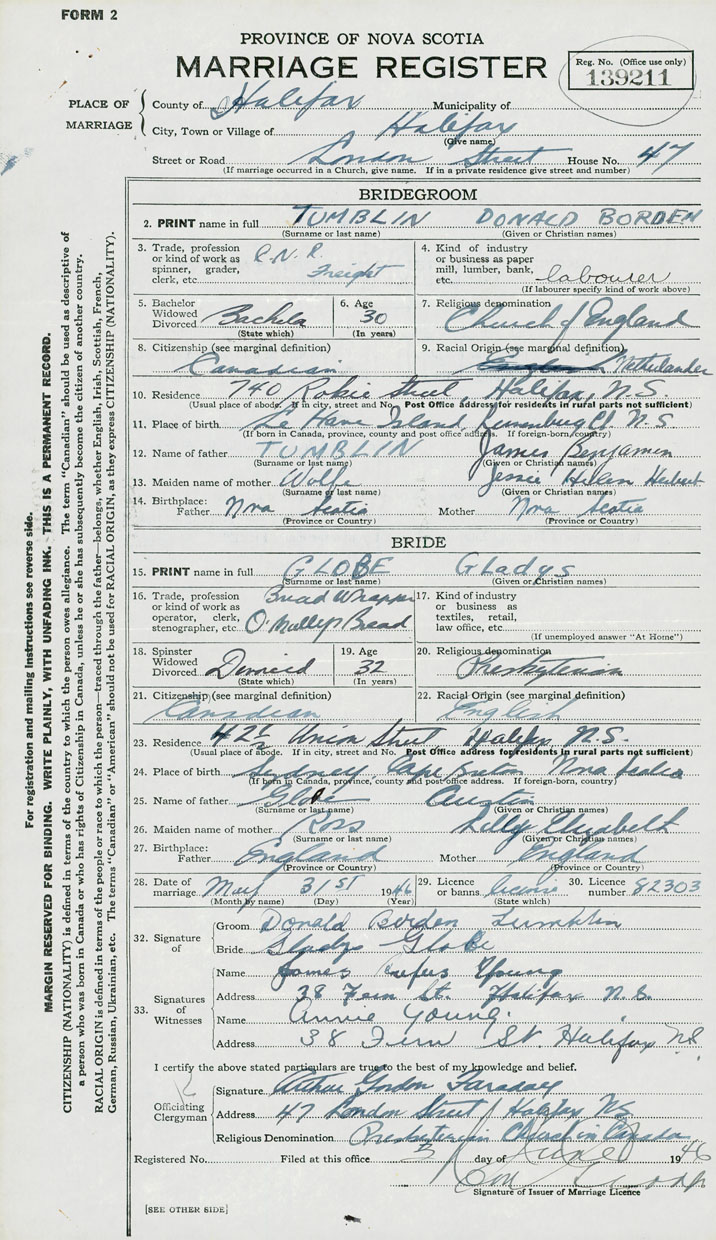 FORM 2
PROVINCE OF NOVA SCOTIA
MARRIAGE REGISTER
Reg. No. (Office use only)
139211
PLACE OF MARRIAGE
County of Halifax Municipality of
City, Town or Village of Halifax
(Give name)
Street or Road London Street House No. 47
(If marriage occurred in a Church, give name. If in a private residence give street and number)
BRIDEGROOM
2. PRINT name in full TUMBLIN DONALD BORDEN
(Surname or last name) (Given or Christian names)
3. Trade, profession or kind of work as spinner, grader, clerk, etc. Freight
4. Kind of industry or business as paper mill, lumber, bank, etc. labourer
(If labourer specify kind of work above)
5. Bachelor Widowed Divorced Bachelor
(State which)
6. Age 30
(In years)
7. Religious denomination Church of England
8. Citizenship (see marginal definition) Canadian
9. Racial Origin (see marginal definition) Netherlander
10. Residence 740 Robie Street, Halifax, N.S.
(Usual place of abode. If in city, street and No. Post Office address for residents in rural parts not sufficient)
11. Place of birth La Have Island, Lunenburg Ct. N.S.
(If born in Canada, province, county and post office address. If foreign-born, country)
12. Name of father TUMBLIN James Benjamin
(Surname or last name) (Given or Christian names)
13. Maiden name of mother Wolfe Jessie Helen Herbert
(Surname or last name) (Given or Christian names)
14. Birthplace: Father Nova Scotia Mother Nova Scotia
(Province or Country) (Province or Country)
BRIDE
15. PRINT name in full GLOBE GLADYS
(Surname or last name) (Given or Christian names)
16. Trade, profession or kind of work as operator, clerk, stenographer, etc. Bread Wrapper O'Malley's Bread
17. Kind of industry or business as textiles, retail, law office, etc.
(If unemployed answer "At Home")
18. Spinster Widowed Divorced Divorced
(State which)
19. Age 32
(In years)
20. Religious denomination Presbyterian
21. Citizenship (see marginal definition) Canadian
22. Racial Origin (see marginal definition) English
23. Residence 42½ Union Street, Halifax, N.S.
(Usual place of abode. If in city, street and No. Post Office address for residents in rural parts not sufficient)
24. Place of birth Sydney Cape Breton Nova Scotia
(If born in Canada, province, county and post office address. If foreign-born, country)
25. Name of father Globe Austin
(Surname or last name) (Given or Christian names)
26. Maiden name of mother Ross Lilly Elizabeth
(Surname or last name) (Given or Christian names)
27. Birthplace: Father England Mother England
(Province or Country) (Province or Country)
28. Date of marriage May 31st 1946
(Month by name) (Day) (Year)
29. Licence or banns license
(State which)
30. Licence number 82303
32. Signature of
Groom Donald Borden Tumblin
Bride Gladys Globe
33. Signatures of Witnesses
Name James Rufus Young
Address 38 Fern St. Halifax N.S.
Name Annie Young.
Address 38 Fern St. Halifax NS
I certify the above stated particulars are true to the best of my knowledge and belief.
Officiating Clergyman
Signature Arthur Gordon Faraday
Address 47 London Street, Halifax NS
Religious Denomination Presbyterian Church in Canada
Registered No. Filed at this office 3 day of June 1946
Signature of Issuer of Marriage Licence
[SEE OTHER SIDE]
For registration and mailing instructions see reverse side.
MARGIN RESERVED FOR BINDING. WRITE PLAINLY, WITH UNFADING INK. THIS IS A PERMANENT RECORD.
CITIZENSHIP (NATIONALITY) is defined in terms of the country to which the person owes allegiance. The term "Canadian" should be used as descriptive of
a person who was born in Canada or who has rights of Citizenship in Canada, unless he or she has subsequently become the citizen of another country.
RACIAL ORIGIN is defined in terms of the people or race to which the person—traced through the father—belongs, whether English, Irish, Scottish, French,
German, Russian, Ukrainian, etc. The terms "Canadian" or "American" should not be used for RACIAL ORIGIN, as they express CITIZENSHIP (NATIONALITY).